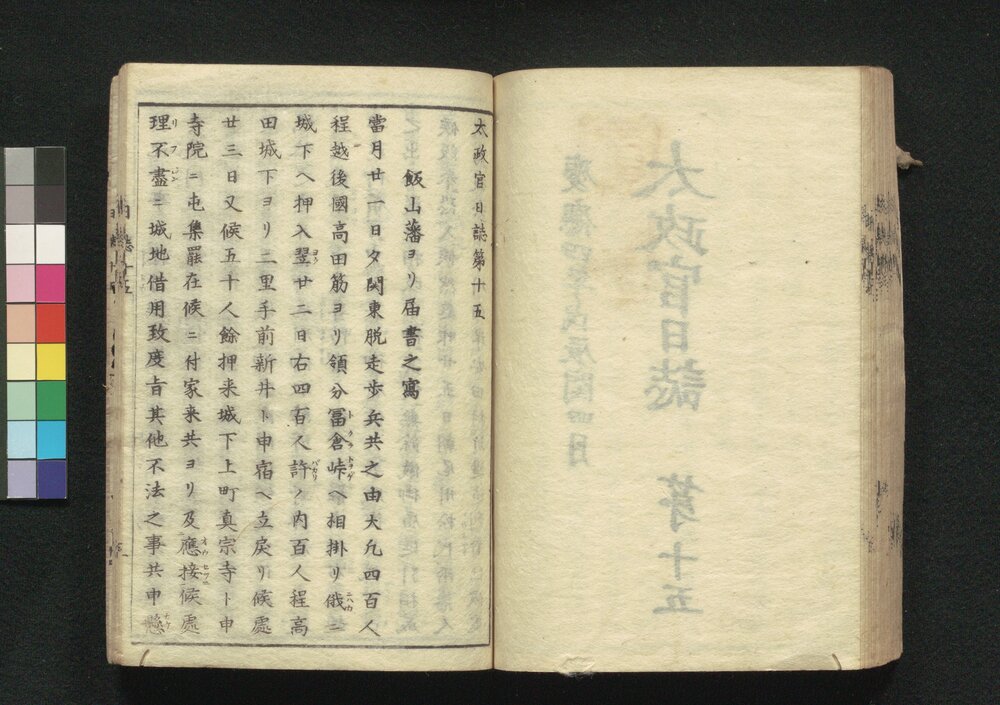 太政官日誌第十五
飯山藩ヨリ届書之寫
當月廿一日夕関東脱走歩兵共之由大凢四百人
程越後國高田筋ヨリ領分冨倉峠ヘ相掛リ俄ニ
城下ヘ押入翌廿二日右四百人許ノ内百人程高
田城下ヨリ二里手前新井ト申宿ヘ立戻リ候處
廿三日又候五十人餘押来城下上町真宗寺ト申
寺院ニ屯集罷在候ニ付家来共ヨリ及應接候處
理不盡ニ城地借用致度旨其他不法之事共申懸